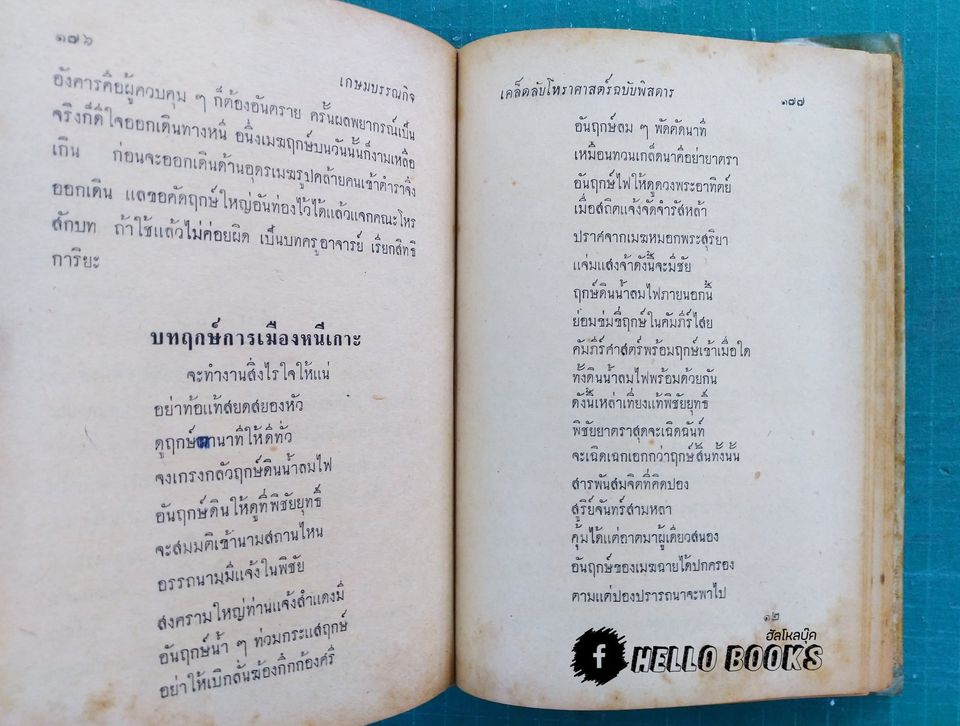 ๑๗๖
เกษมบรรณกิจ
อังคารคือผู้ควบคุม ๆ ก็ต้องอันตราย ครั้นผลพยากรณ์เป็น
จริงก็ดีใจออกเดินทางหนี อนึ่งเมฆฤกษ์บนวันนั้นก็งามเหลือ
เกิน ก่อนจะออกเดินด้านอุดรเมฆรูปคล้ายคนเข้าตำราจึง
ออกเดิน แลขอคัดฤกษ์ใหญ่อันท่องไว้ได้แล้วแจกคณะโหร
สักบท ถ้าใช้แล้วไม่ค่อยผิด เป็นบทครูอาจารย์ เรียกสิทธิ
การิยะ
บทฤกษ์การเมืองหนีเกาะ
จะทำงานสิ่งไรใจให้แน่
อย่าท้อแท้สยดสยองหัว
ดูฤกษ์ผานาทีให้ดีทั่ว
จงเกรงกลัวฤกษ์ดินน้ำลมไฟ
อันฤกษ์ดินให้ดูที่พิชัยยุทธ์
จะสมมติเข้านามสถานไหน
อรรถนามมีแจ้งในพิชัย
สงครามใหญ่ท่านแจ้งสำแดงมี
อันฤกษ์น้ำ ๆ ท่วมกระแสฤกษ์
อย่าให้เบิกลั่นฆ้องกึกก้องศรี
เคล็ดลับโหราศาสตร์ฉบับพิสดาร
๑๗๗
อันฤกษ์ลม ๆ พัดคัดนาที
เหมือนทวนเกล็ดนาคีอย่ายาตรา
อันฤกษ์ไฟให้ดูดวงพระอาทิตย์
เมื่อสถิตแจ้งจัดจำรัสหล้า
ปราศจากเมฆหมอกพระสุริยา
แจ่มแสงจ้าดังนี้จะมีชัย
ฤกษ์ดินน้ำลมไฟภายนอกนี้
ย่อมข่มขี่ฤกษ์ในคัมภีร์ไสย
คัมภีร์ศาสตร์พร้อมฤกษ์เข้าเมื่อใด
ทั้งดินน้ำลมไฟพร้อมด้วยกัน
ดังนี้เหล่าเที่ยงแท้พิชัยยุทธ์
พิชัยยาตราสุดจะเฉิดฉันท์
จะเฉิดเฉกเอกกว่าฤกษ์สิ้นทั้งนั้น
สารพันสมจิตที่คิดปอง
สุริย์จันทร์สามหลา
คุ้มได้แต่อาตมาผู้เดียวสนอง
อันฤกษ์ของเมฆฉายได้ปกครอง
ตามแต่ปองปรารถนาจะพาไป
๑๒
ฮัลโหลบุ๊ค
f HELLO BOOKS